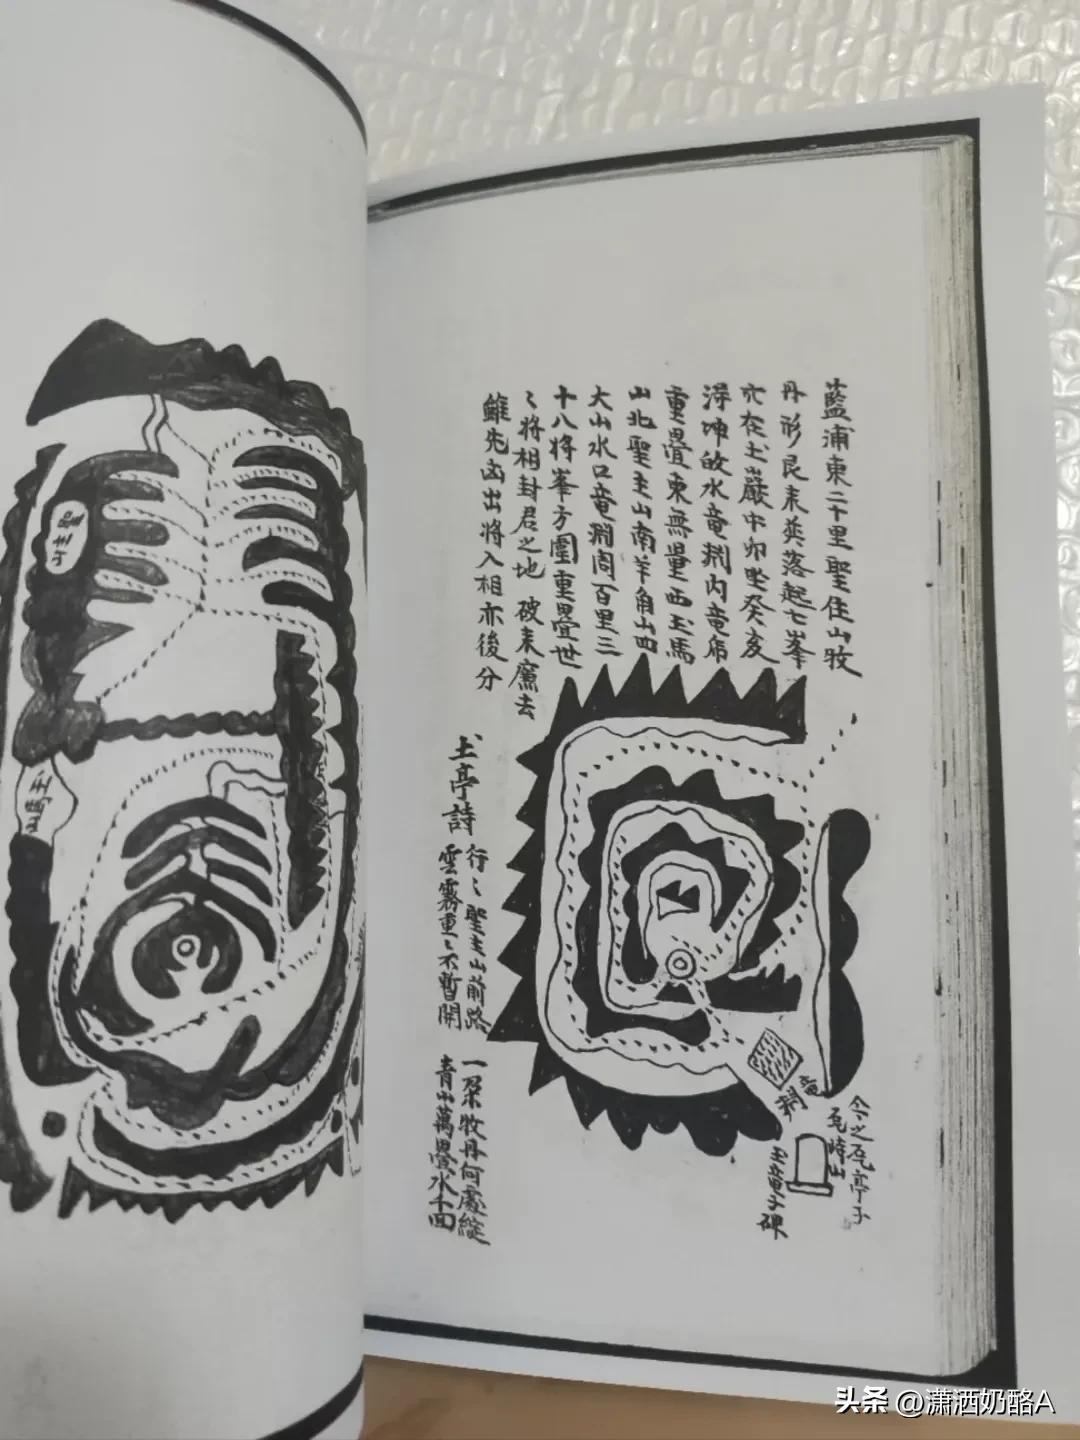 藍浦東二十里聖住山牧
丹形艮来英落起七峯
穴在土巖中卯坐癸亥
淂坤的水竜捌内竜席
重疊東無量西玉馬
山北聖主山南羊角山四
大山水口竜淵周百里三
十八将峯方圍重疊世
〻将相封君之地 破来廉去
雖先凶出将入相亦後分
土亭詩
行〻聖主山前路
雲霧重〻不暫開
一朶牧丹何處綻
青山萬疊水千回
竜捌
玉竜子碑
今之瓦亭子
瓦峙山
聖主
玉馬山
头条 @潇洒奶酪A